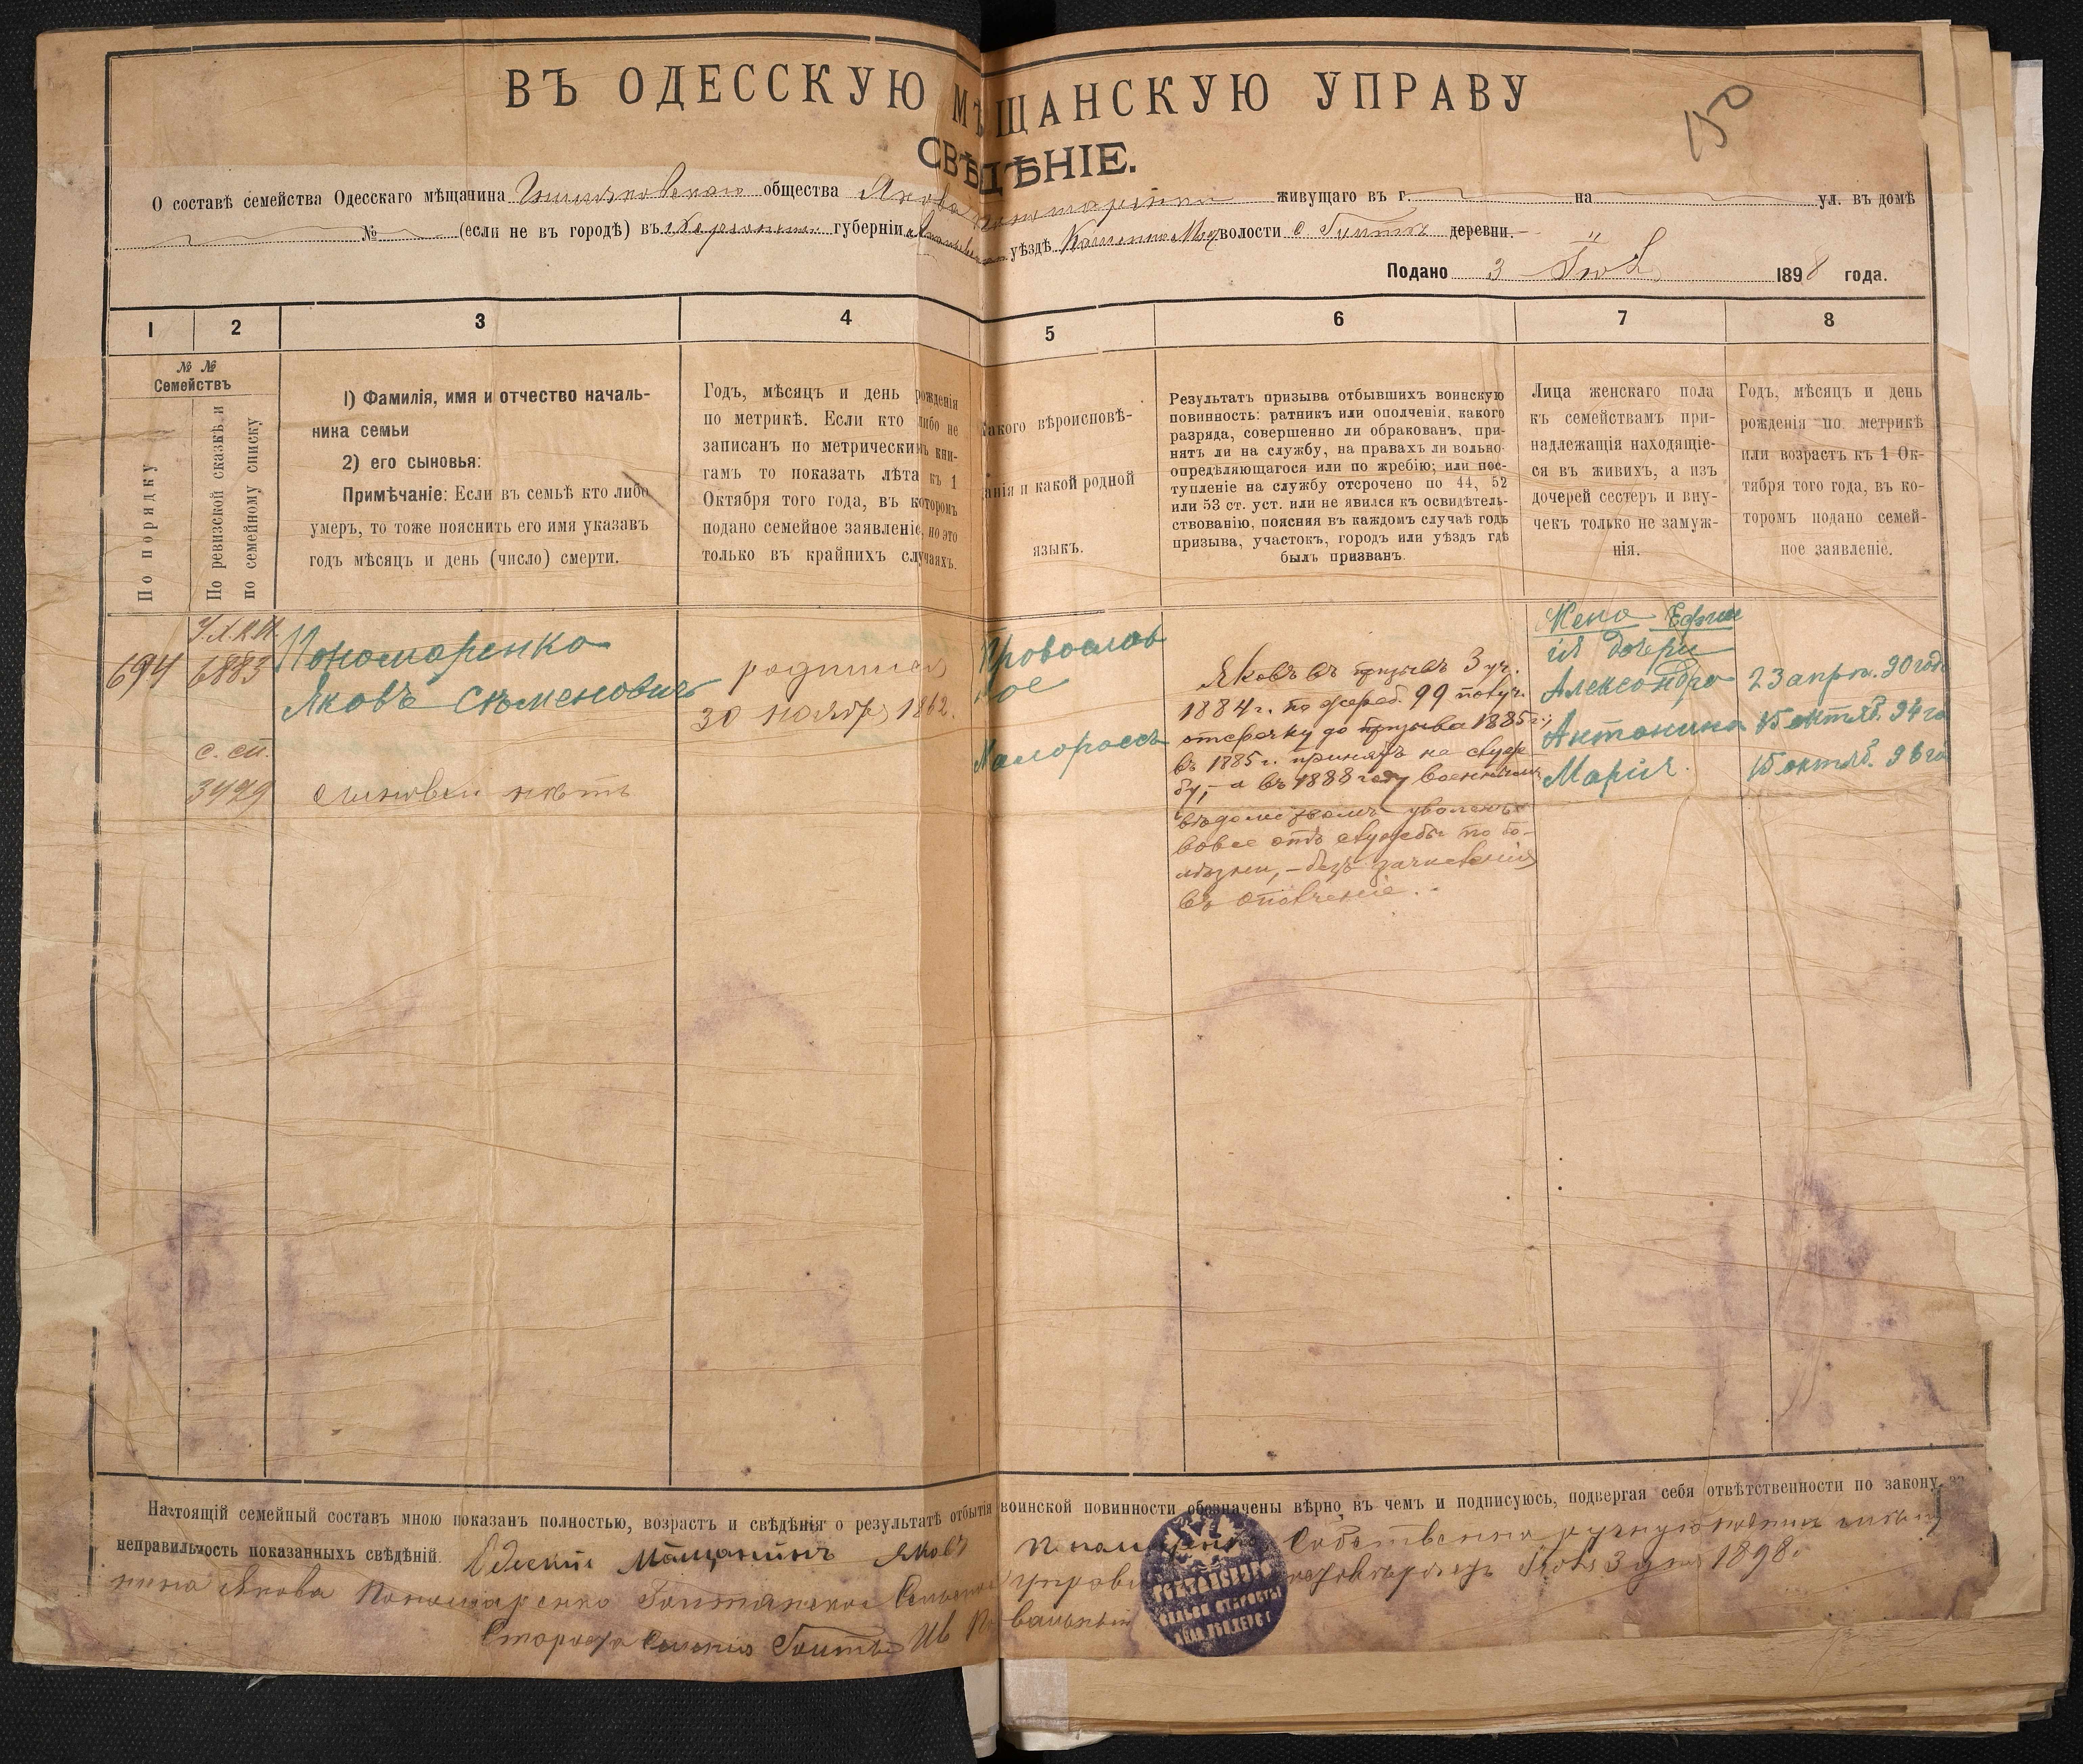 ВЪ ОДЕССКУЮ МѢЩАНСКУЮ УПРАВУ
150
СВѢДѢНІЕ.
О составѣ семейства Одесскаго мѣщанина общества Якова живущаго въ г. на ул. въ домѣ
№ (если не въ городѣ) въ Херсонской губерніи уѣздѣ волости с деревни.
Подано 3 1898 года.
1 2 3 4 5 6 7 8
№ №
Семействъ
По порядку
По ревизской сказкѣ и
по семейному списку
1) Фамилія, имя и отчество началь-
ника семьи
2) его сыновья:
Примѣчаніе: Если въ семьѣ кто либо
умеръ, то тоже пояснить его имя указавъ
годъ мѣсяцъ и день (число) смерти.
Годъ, мѣсяцъ и день рожденія
по метрикѣ. Если кто либо не
записанъ по метрическимъ кни-
гамъ то показать лѣта къ 1
Октября того года, въ которомъ
подано семейное заявленіе, но это
только въ крайнихъ случаяхъ.
Какого вѣроисповѣ-
данія и какой родной
языкъ.
Результатъ призыва отбывшихъ воинскую
повинность: ратникъ или ополченія, какого
разряда, совершенно ли обракованъ, при-
нятъ ли на службу, на правахъ ли вольно-
опредѣляющагося или по жребію; или пос-
тупленіе на службу отсрочено по 44, 52
или 53 ст. уст. или не явился къ освидѣтель-
ствованію, поясняя въ каждомъ случаѣ годъ
призыва, участокъ, городъ или уѣздъ гдѣ
былъ призванъ.
Лица женскаго пола
къ семействамъ при-
надлежащія находящіе-
ся въ живихъ, а изъ
дочерей сестеръ и вну-
чекъ только не замуж-
нія.
Годъ, мѣсяцъ и день
рожденія по метрикѣ
или возрастъ къ 1 Ок-
тября того года, въ ко-
торомъ подано семей-
ное заявленіе.
694
6883
с. сп.
3429
Пономаренко
Яковъ Сѣменовичъ
сыновей нѣтъ
родился
30 ноября 1862.
Православ
ное
Малоросс
Яковъ въ призывъ 3 уч.
1884 г. по жереб. 99 получ.
отсрочку до призыва 1885 г.;
въ 1885 г. принятъ на служ
бу, — а въ 1888 году военнымъ
вѣдомствомъ уволенъ
вовсе отъ службы по бо-
лѣзни, — безъ зачисленія
въ ополченіе.
Жена Ефи
ія дочери
Александра
Антонина
Марія.
23 апрл. 90 год
15 октяб. 94 го
15 октяб. 96 го
Настоящій семейный составъ мною показанъ полностью, возрастъ и свѣдѣнія о результатѣ отбытія воинской повинности обозначены вѣрно, въ чемъ и подписуюсь, подвергая себя отвѣтственности по закону, за
неправильность показанныхъ свѣдѣній. Одескій Мѣщанинъ Яковъ Собственно ручную подпись
нина Якова Пономаренко 3 дня 1898.
Староста